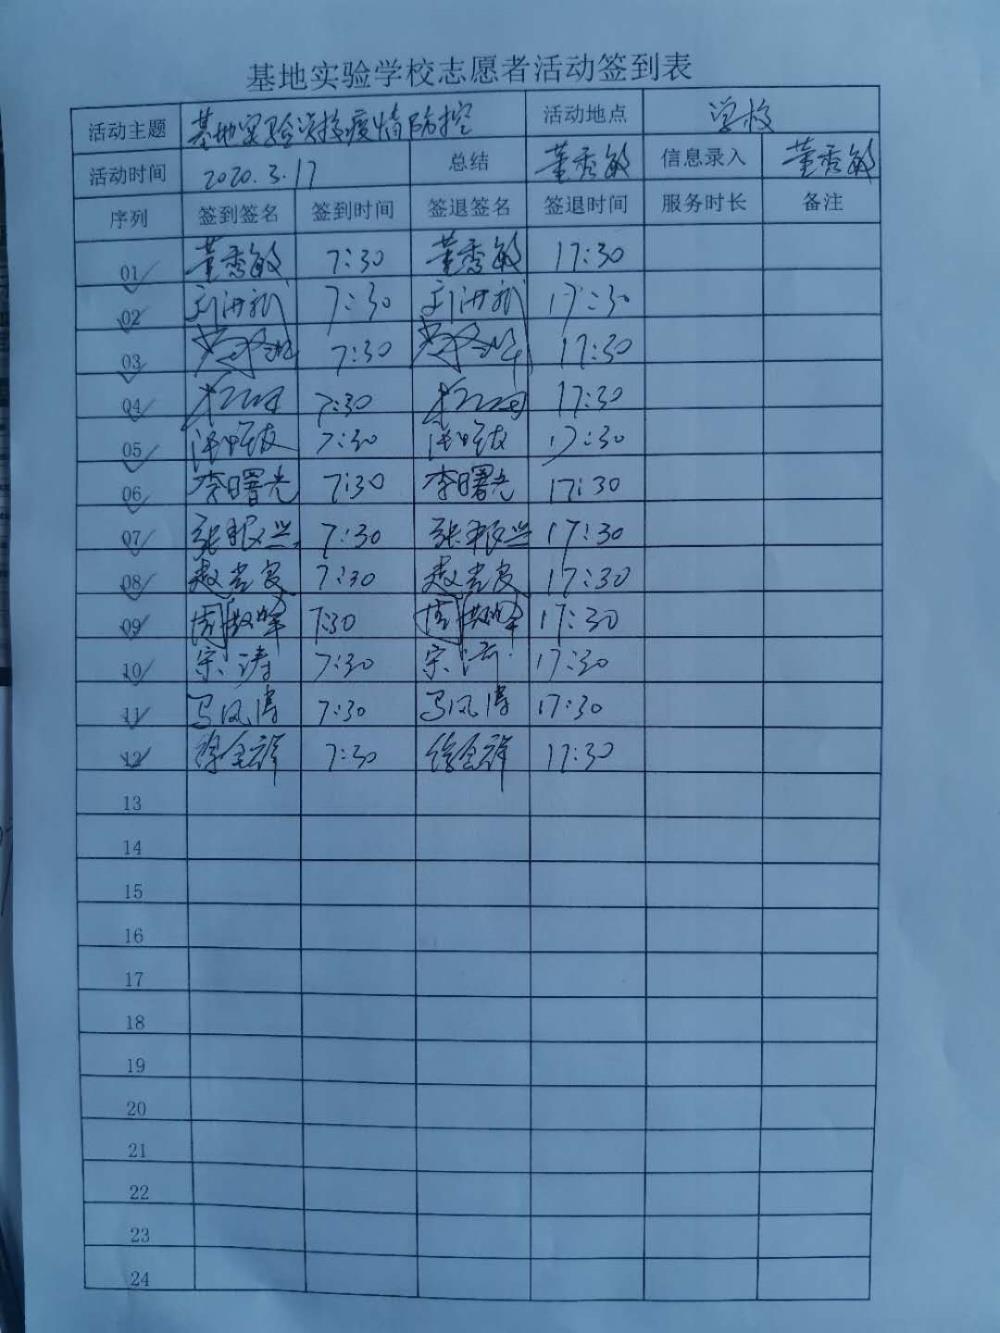 基地实验学校志愿者活动签到表
活动主题 基地实验学校疫情防控 活动地点 学校
活动时间 2020.3.17 总结 董秀敏 信息录入 董秀敏
序列 签到签名 签到时间 签退签名 签退时间 服务时长 备注
01 董秀敏 7:30 董秀敏 17:30
02 7:30 17:30
03 7:30 17:30
04 7:30 17:30
05 7:30 17:30
06 李曙光 7:30 李曙光 17:30
07 张振兴 7:30 张振兴 17:30
08 7:30 17:30
09 7:30 17:30
10 宗涛 7:30 宗涛 17:30
11 马凤涛 7:30 马凤涛 17:30
12 徐金祥 7:30 徐金祥 17:30
13
14
15
16
17
18
19
20
21
22
23
24